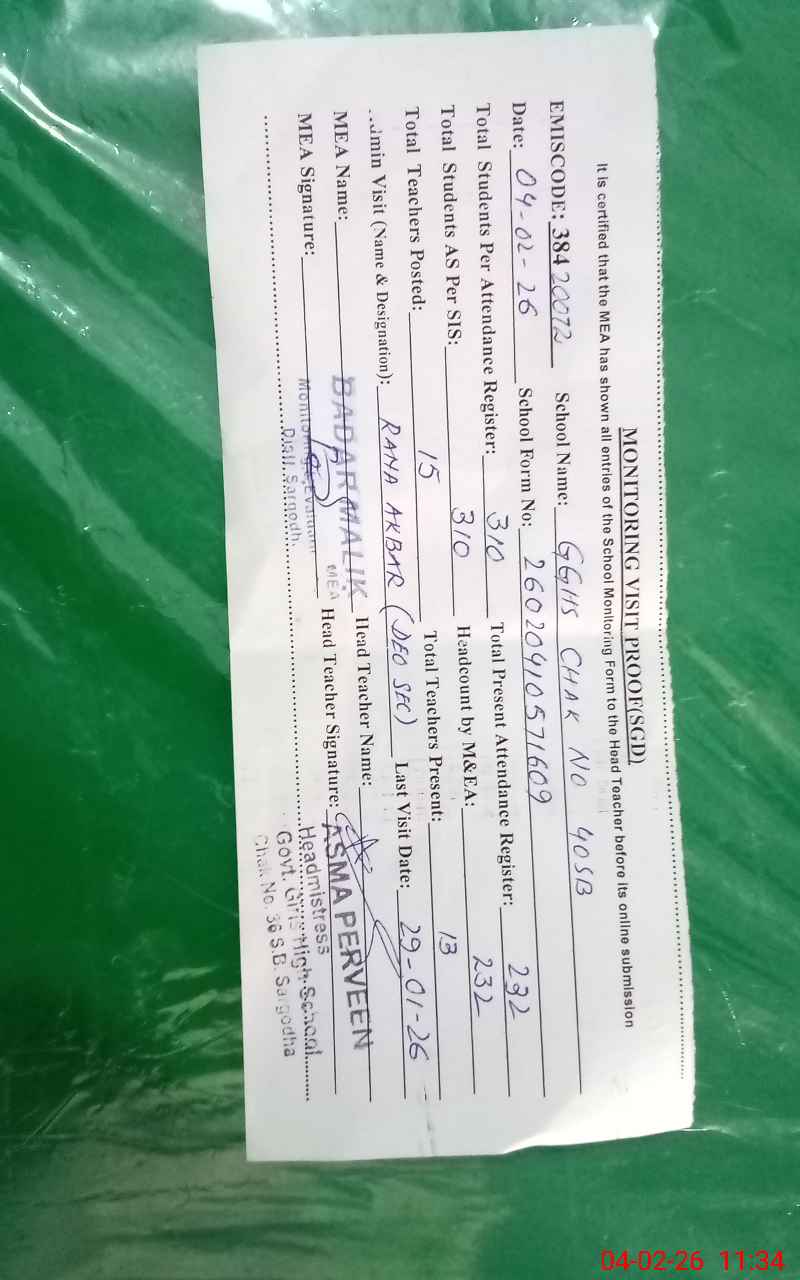 MONITORING VISIT PROOF(SGD)
It is certified that the MEA has shown all entries of the School Monitoring Form to the Head Teacher before its online submission
EMISCODE: 38420072 School Name: GGHS CHAK NO 40SB
Date: 04-02-26 School Form No: 26020410571609
Total Students Per Attendance Register: 310 Total Present Attendance Register: 232
Total Students AS Per SIS: 310 Headcount by M&EA: 232
Total Teachers Posted: 15 Total Teachers Present: 13
Admin Visit (Name & Designation): RANA AKBAR (DEO SEC) Last Visit Date: 29-01-26
MEA Name: BADAR MALIK Head Teacher Name:
MEA
MEA Signature: Head Teacher Signature: ASMA PERVEEN
Headmistress
Govt. Girls High School
Chak No. 36 S.B. Sargodha
04-02-26 11:34